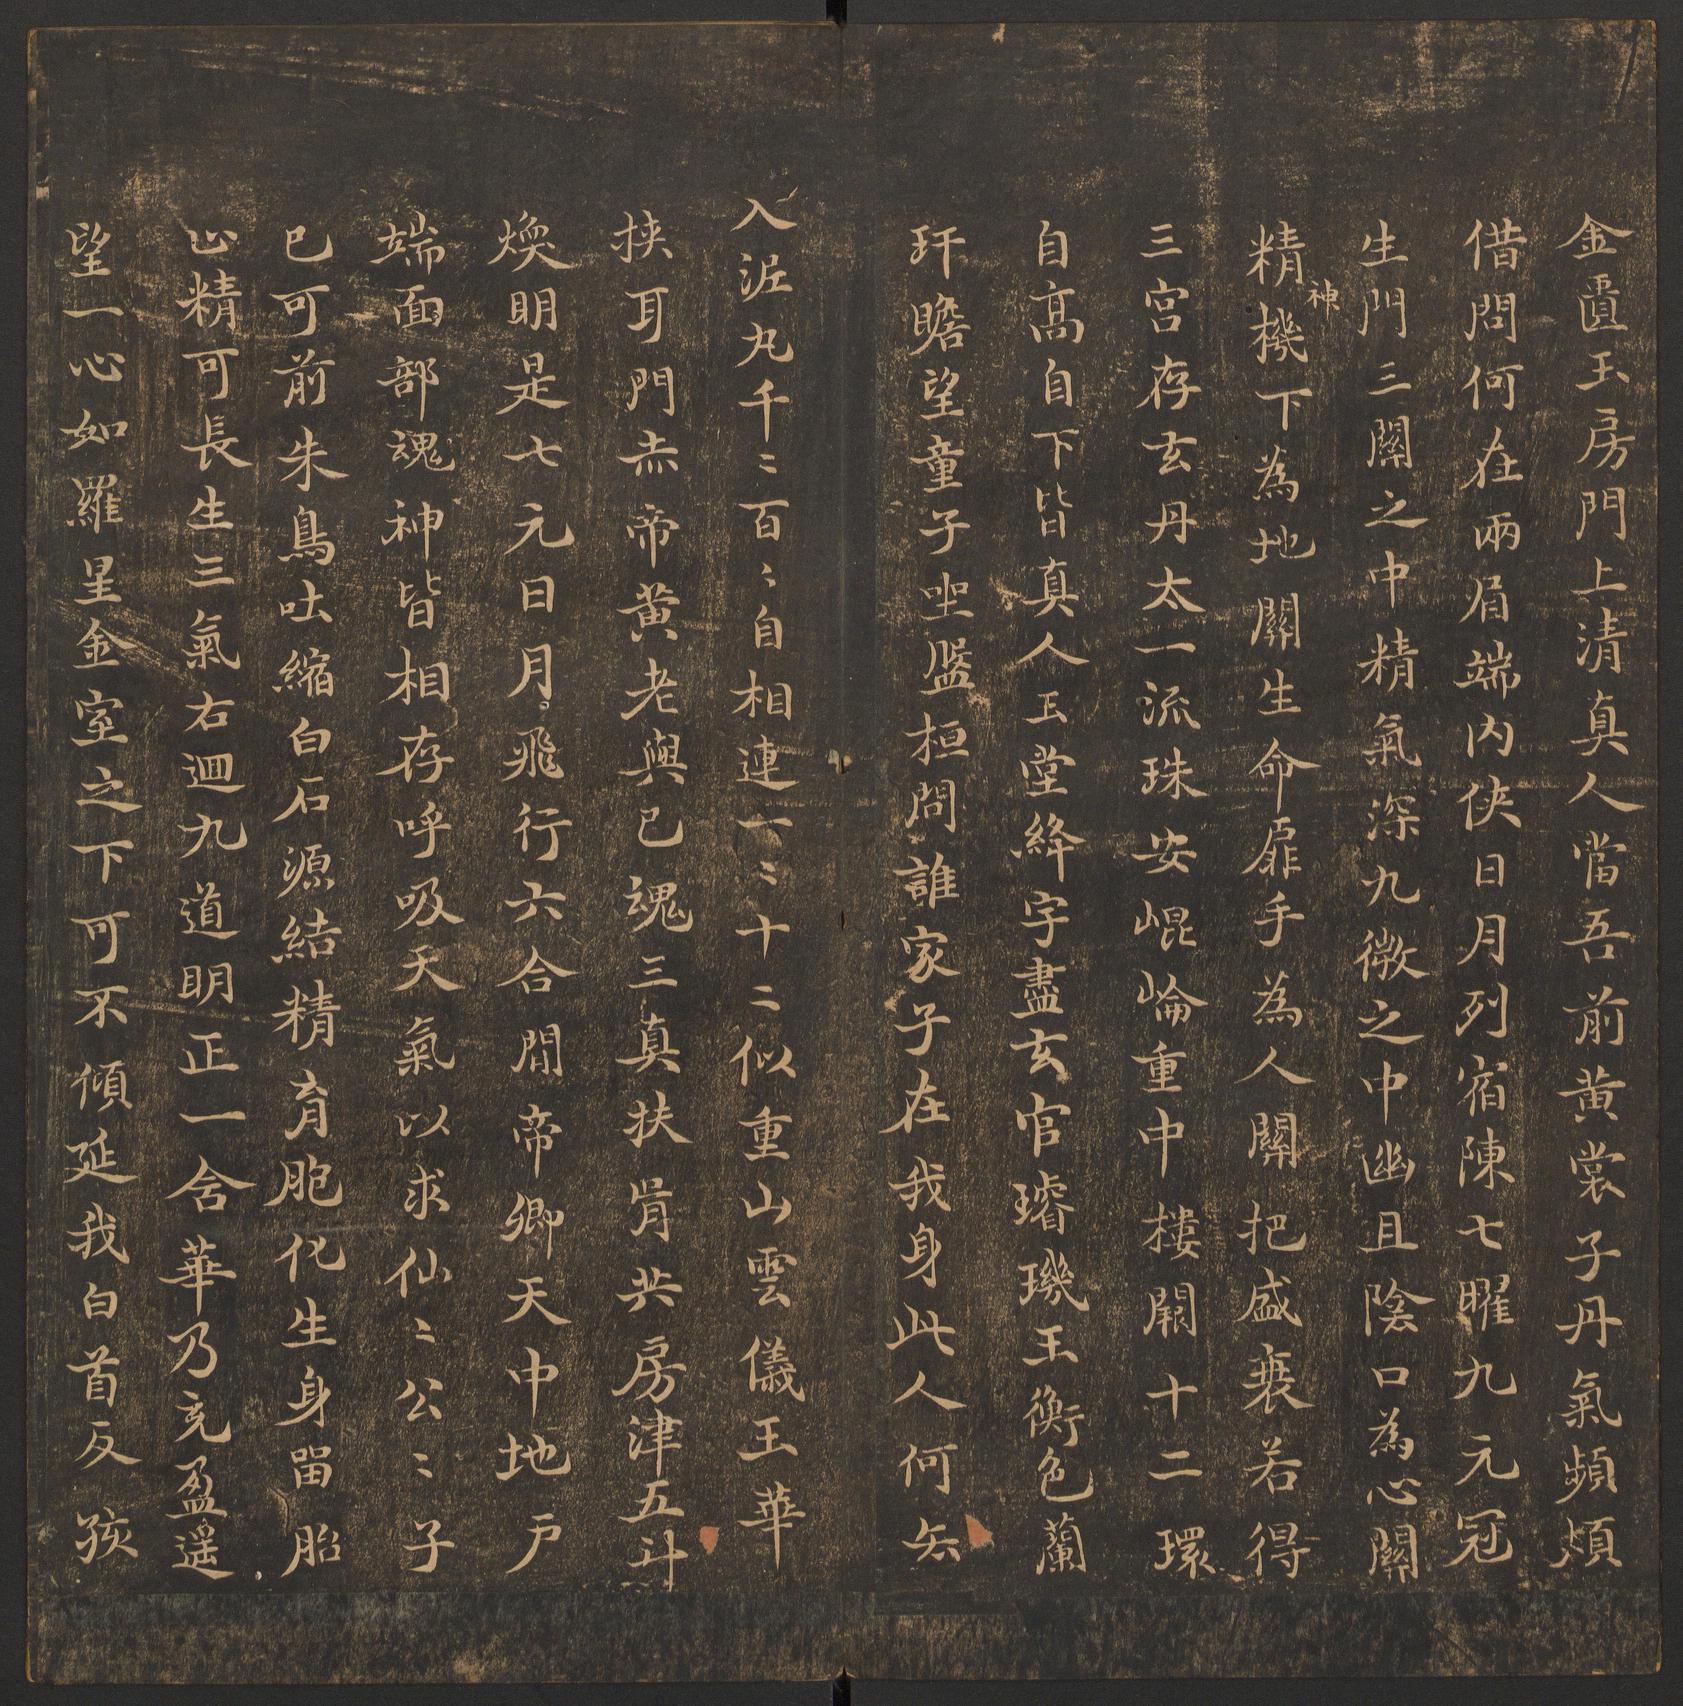 金匱玉房門上清真人當吾前黃裳子丹氣頻煩
借問何在兩眉端內俠日月列宿陳七曜九元冠
生門三關之中精氣深九微之中幽且陰口為心關
精神機下為地關生命扉手為人關把盛衰若得
三宮存玄丹太一流珠安崐崘重中樓閣十二環
自高自下皆真人玉堂絳宇盡玄官璿璣玉衡色蘭
玕瞻望童子坐盤桓問誰家子在我身此人何去
入泥丸千〻百〻自相連一〻十二似重山雲儀玉華
挾耳門赤帝黃老與己魂三真扶胥共房津五斗
煥明是七元日月飛行六合間帝卿天中地戶
端面部魂神皆相存呼吸天氣以求仙〻公〻子
已可前朱鳥吐縮白石源結精育胞化生身留胎
止精可長生三氣右迴九道明正一含華乃充盈遥
望一心如羅星金室之下可不傾延我白首反孩